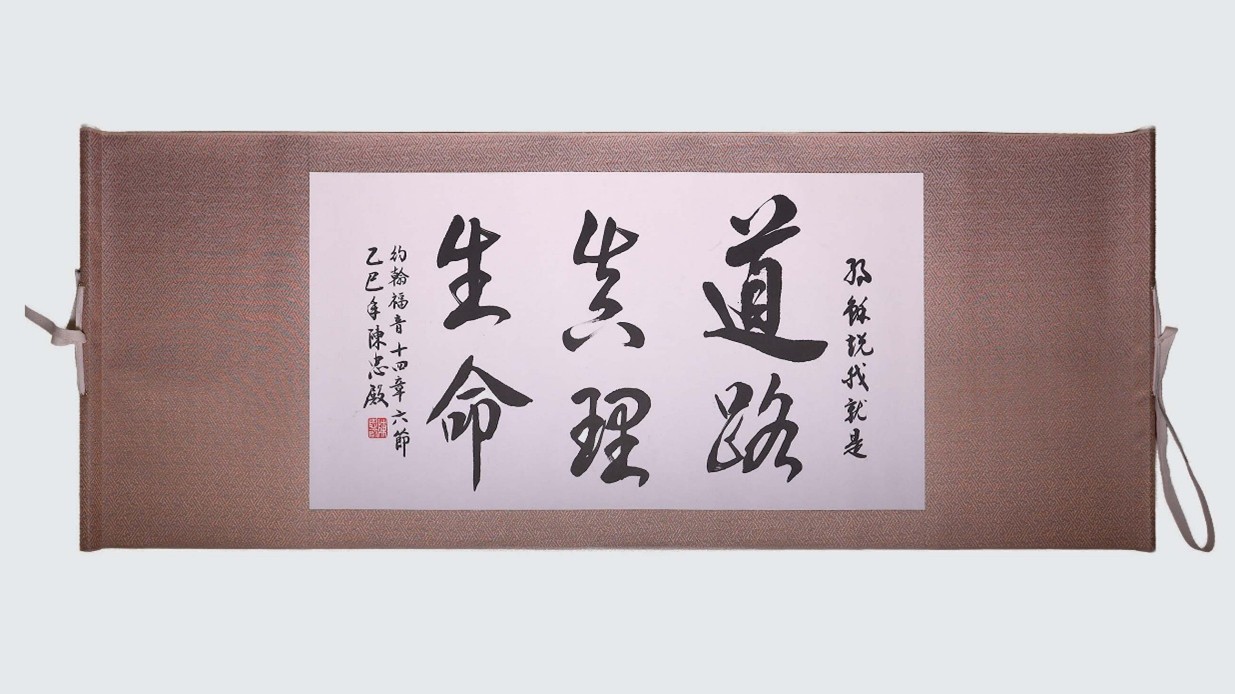 耶穌説我就是
道路
真理
生命
約翰福音十四章六節
乙巳年陳忠殿